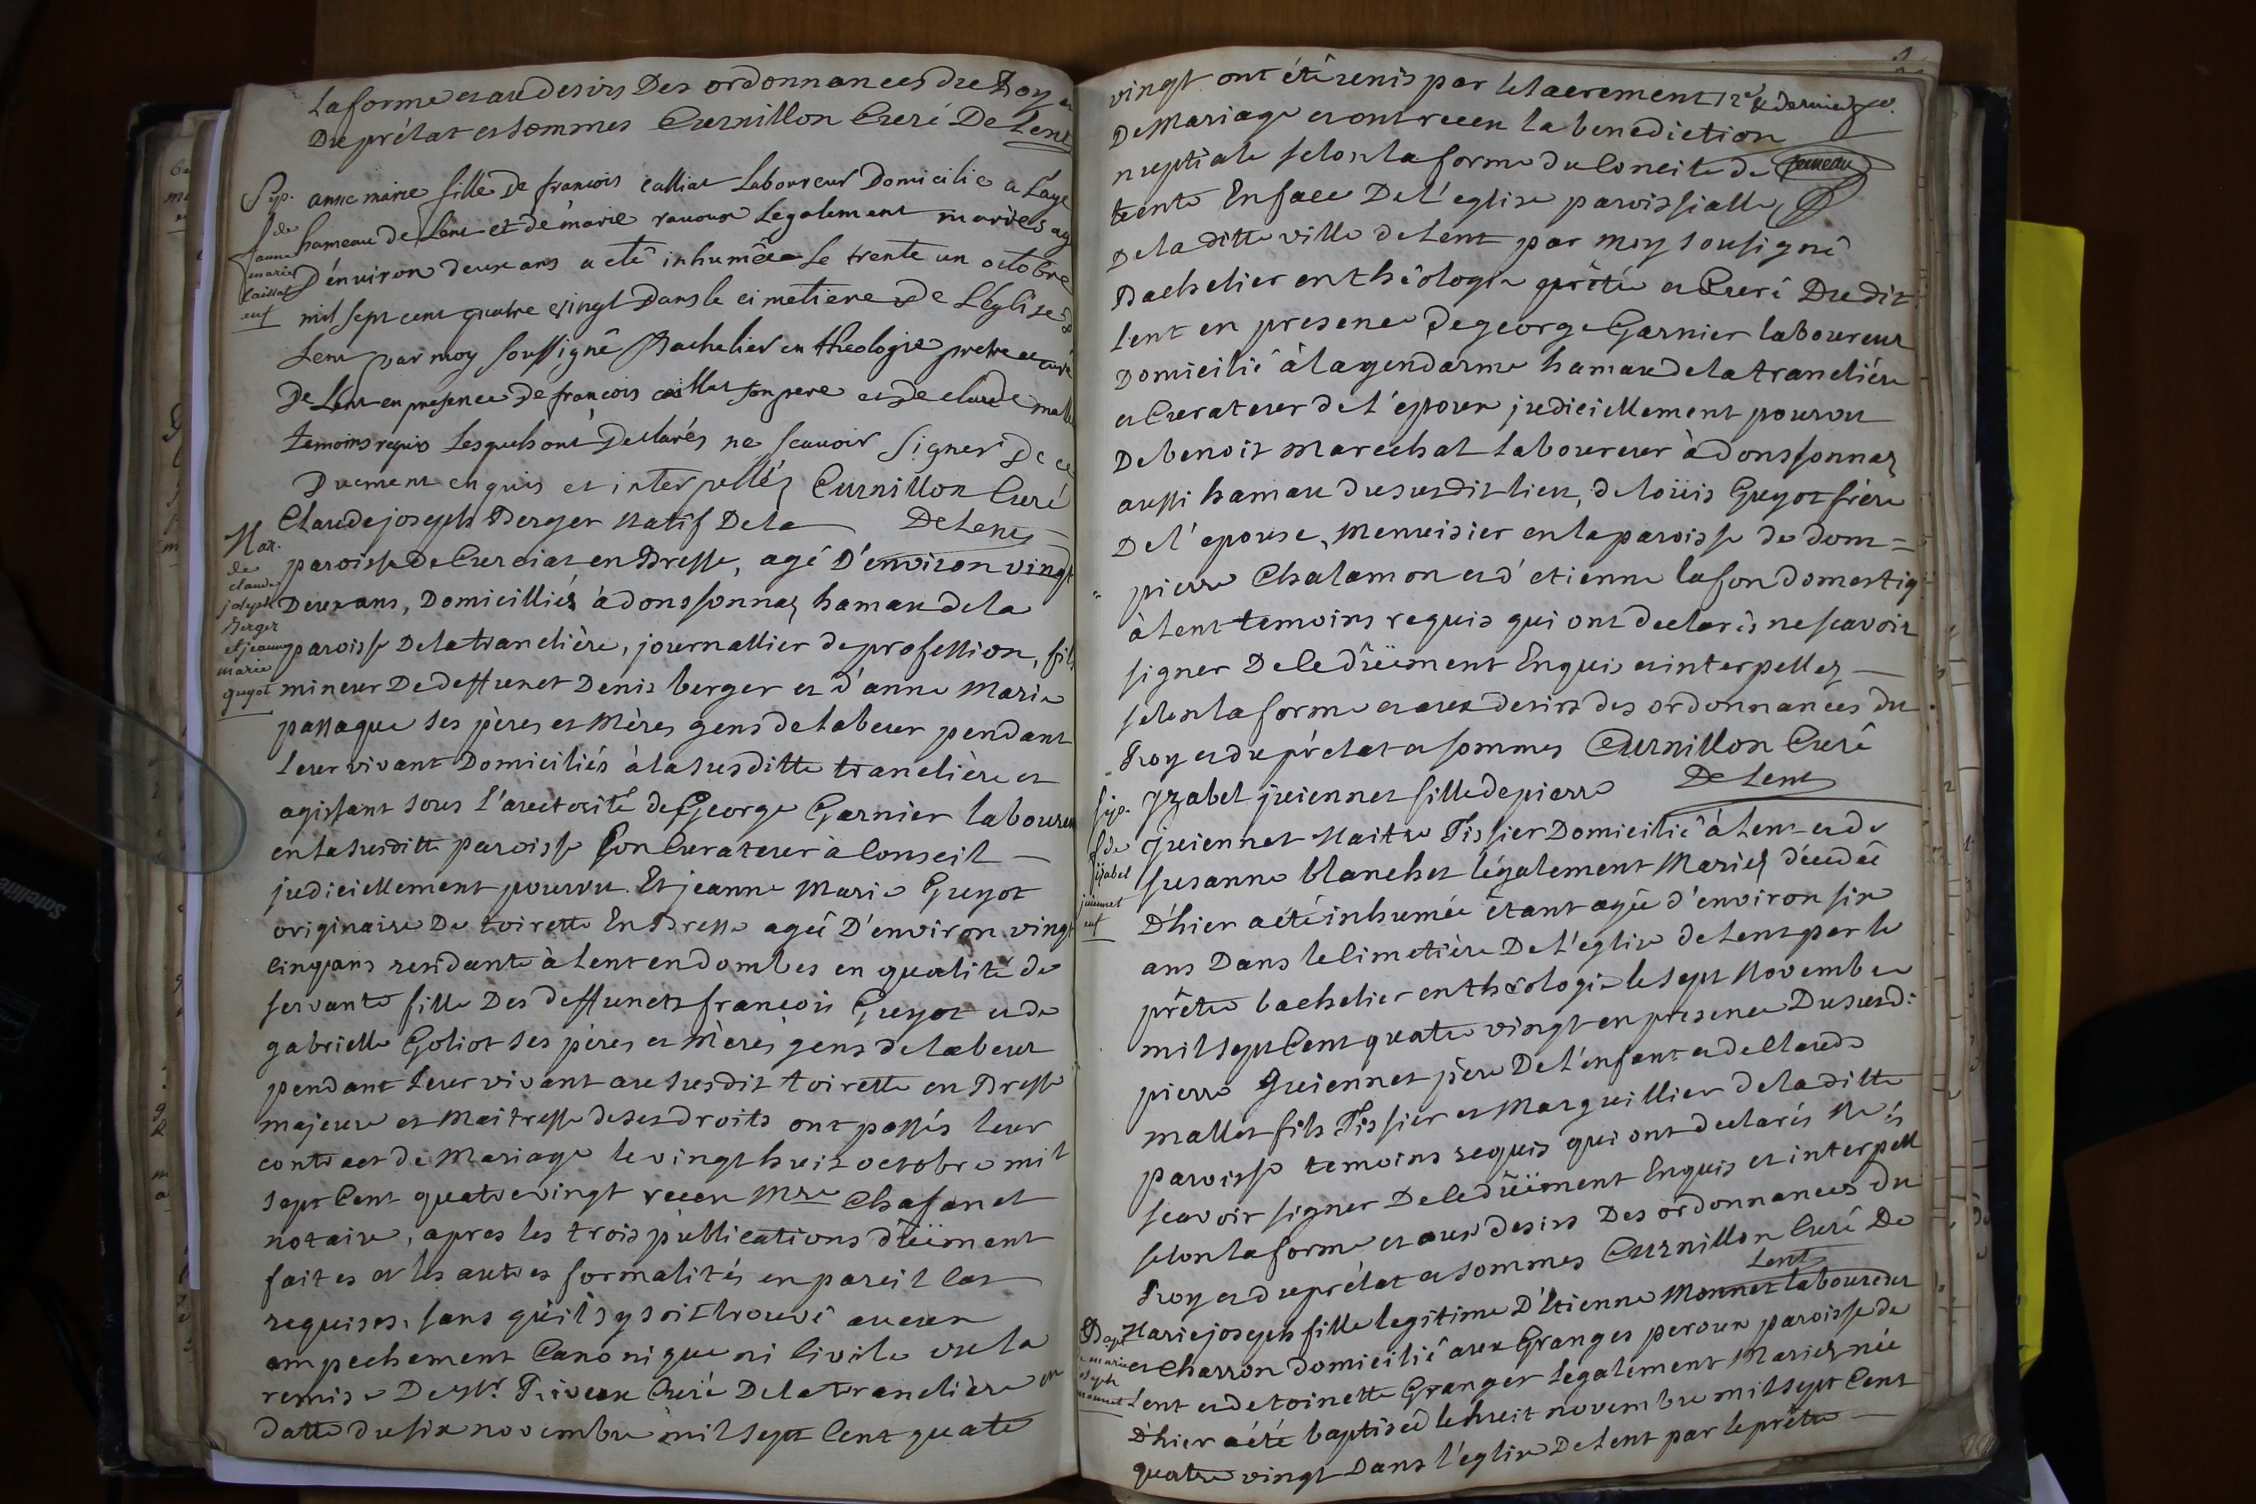 La forme et au desirs Des ordonnances du Roy et
Du prélat et sommes Curnillon Curé De Lent
Sep.
de
anne
marie
Caillat
enf
anne marie fille De francois calliat Laboureur Domicilie a Laye
hameau de Lent et de marie ravoux Legalement mariés ag
D'énviron deux ans a eté inhumée Le trente un octobre
mil sept cent quatre vingt Dans le cimetiere de L'églize de
Lent par moy soussigné Bachelier en theologie pretre et curé
De Lent en presence De francois caillat son pere et De claude mall
temoins requis Lesquels ont Declarés ne scavoir signer De ce
Duement enquis et interpellés Curnillon Curé
De Lent
Mar.
de
claude
joseph
Berger
et jeanne
marie
guyot
Claude joseph Berger Natif De la
paroisse De Curciat en Bresse, agé D'environ vingt
Deux ans, Domicilliés à donssonnas hamau de la
paroisse De la tranclière, journallier de profession, fils
mineur De deffunct Denis berger et d'anne Marie
passaque ses pères et Mères gens de labeur pendant
Leur vivant Domiciliés à la susditte tranclière et
agissant sous l'auctorité de George Garnier laboureu
en la susditte paroisse son Curateur à Conseil
judiciellement pourvu. Et jeanne Marie Guyot
originaire De toirette En Bresse ageé D'environ vingt
cinq ans residante à Lent en dombes en qualité de
servante fille Des deffuncts françois Guyot et de
gabrielle Goliot ses pères et Mères gens de labeur
pendant Leur vivant au susdit toirette en Bresse
majeure et Maitresse de ses droits ont passés leur
contract de Mariage le vingt huit octobre mil
sept Cent quatre vingt receu Mre Chafanet
notaire, apres les trois publications dûëment
faites et les autres formalités en pareil Cas
requises, sans qu'il s'y soit trouvé aucun
ampechement Canonique ni Civile vu la
remise De Mr. Riveux Curé De la tranclière en
datte du six novembre mil sept Cent quate
vingt ont été unis par le sacrement
De Mariage et ont receu la benediction
nuptiale selon la forme du Concile de
trente En face De L'eglise paroissialle
De la ditte ville de Lent par moy sousigné
Bachelier en théologie prêtre et Curé Du dit
Lent en presence de george Garnier laboureur
Domicilié à la gendarme hamau de la tranclière
et Curateur de L'epoux judiciellement pourvu
De benoit Marechal Laboureur à donssonnas
aussi hamau du susdit lieu, de loüis Guyot frère
De l'epouse, Menuisier en la paroisse de dom=
pierre Chalamon et d'etienne lafon domestiq
à Lent temoins requis qui ont declarés ne scavoir
signer De le dûëment Enquis et interpellez
selon la forme et aux desirs des ordonnances du
Roy et du prélat et sommes Curnillon Curé
De Lent
Sep.
de
yzabel
juiennet
enf
Yzabel juiennet fille de pierre
juiennet Maitre Tissier Domicilié à Lent et de
susanne blanchet légalement Mariés décedée
D'hier a été inhumée étant agée d'environ six
ans Dans le Cimetière De L'eglise de Lent par le
prêtre bachelier en théologie le sept Novembre
mil sept Cent quatre vingt en presence Du susd:
pierre juiennet père De L'enfant et de Claude
mallet fils Tissier et Marguillier de la ditte
paroisse temoins requis qui ont declarés Ne
scavoir signer De le dûëment Enquis et interpellés
selon la forme et aux desirs Des ordonnances du
Roy et du prélat et sommes Curnillon Curé De
Lent
Bapt
marie
joseph
monnet
Marie joseph fille legitime D'Etienne Monnet laboureur
et Charron domicilié aux Granges peroux paroisse de
Lent et de toinette Granger Legalement Mariés née
D'hier a été baptiseé le huit novembre mil sept Cent
quatre vingt Dans l'église De Lent par le prêtre